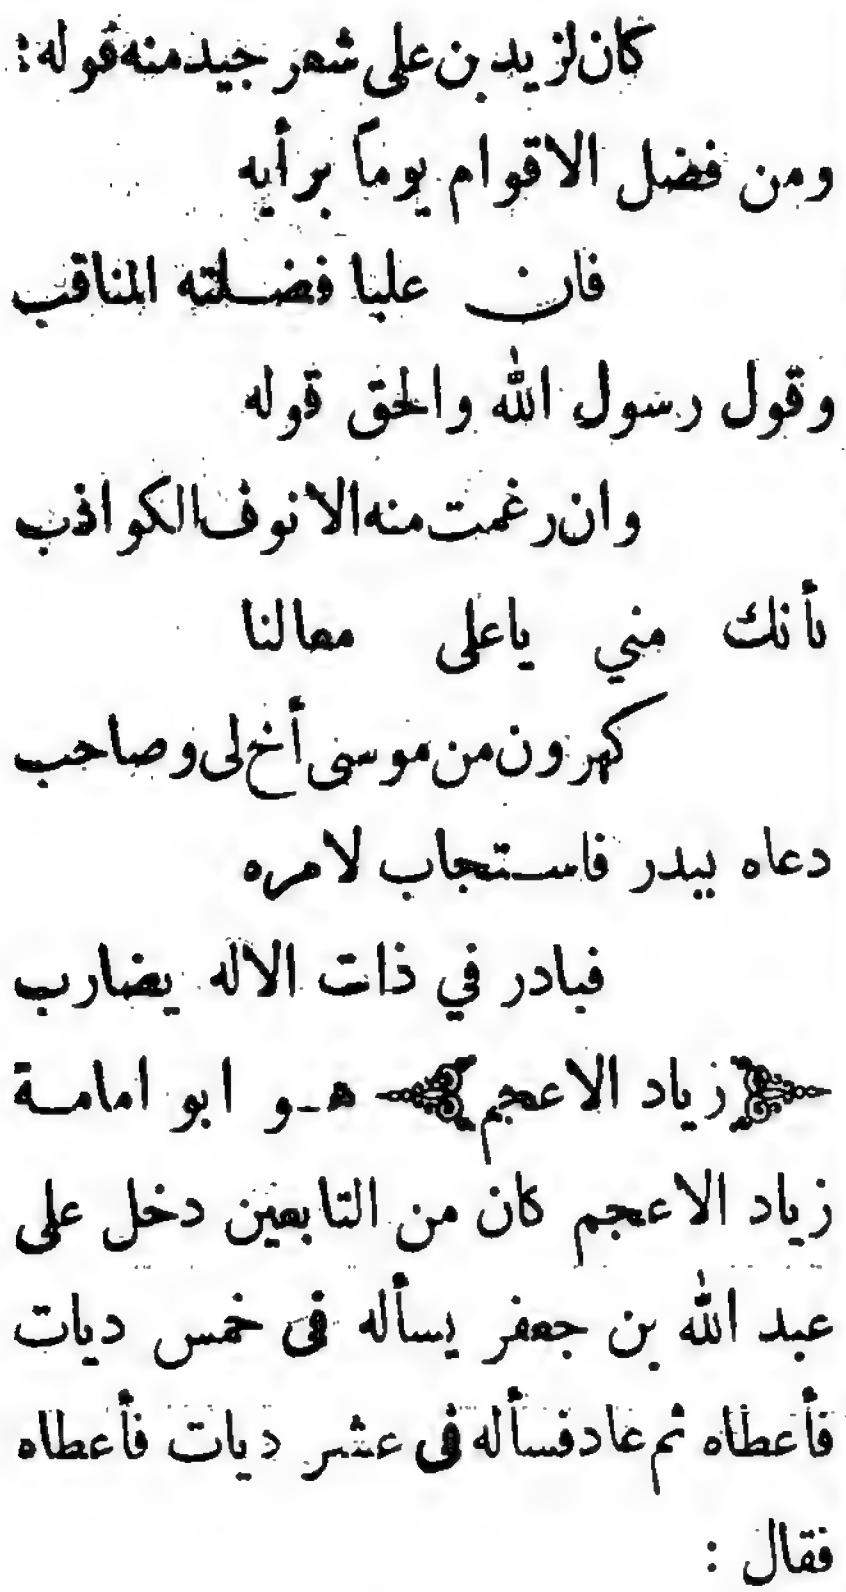 كان لزيد بن على شعر جيد منه قوله :
ومن فضل الاقوام يوماً برأيه
فان عليا فضلته المناقب
وقول رسول الله والحق قوله
وان رغمت منه الانوف الكواذب
بأنك مني ياعلى معالنا
كهرون من موسى أخ لى وصاحب
دعاه ببدر فاستجاب لامره
فبادر في ذات الاله يضارب
﴿زياد الاعجم﴾ هو ابو امامة
زياد الاعجم كان من التابعين دخل على
عبد الله بن جعفر يسأله فى خمس ديات
فأعطاه ثم عاد فسأله فى عشر ديات فأعطاه
فقال :